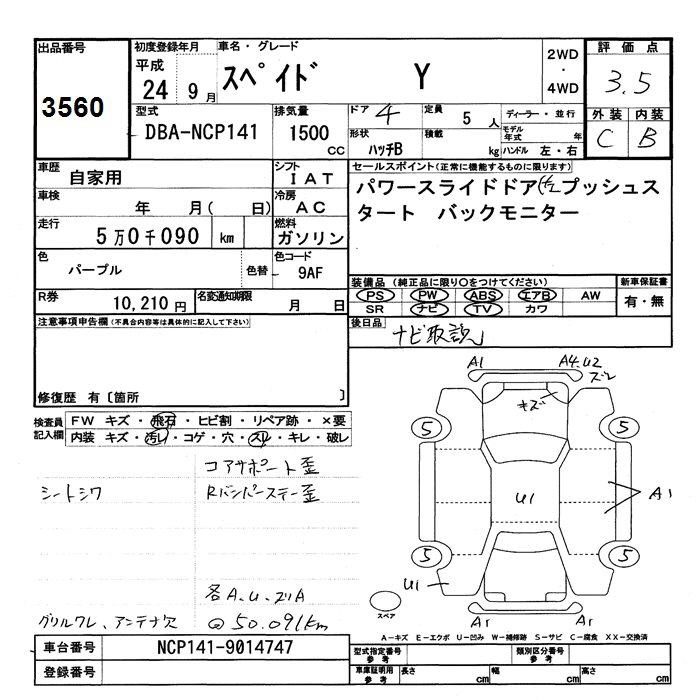 出品番号
3560
初度登録年月
平成
24 9月
車名・グレード
スペイド Y
2WD
・
4WD
評価点
3.5
外装 内装
C B
型式
DBA-NCP141
排気量
1500 CC
ドア 4
定員 5 人
ディーラー・並行
形状 ハッチB
積載 kg
モデル年式 年
ハンドル 左・右
車歴 自家用
シフト IAT
車検 年 月( 日)
冷房 AC
走行 5万0千090 km
燃料 ガソリン
色 パープル 色替
色コード 9AF
R券 10,210円
名変通知期限 月 日
セールスポイント(正常に機能するものに限ります)
パワースライドドア(左)プッシュス
タート バックモニター
装備品 (純正品に限り○をつけてください)
PS PW ABS エアB AW
SR ナビ TV カワ
新車保証書
有・無
後日品
ナビ取説
注意事項申告欄(不具合内容等は具体的に記入して下さい)
修復歴 有〔箇所 〕
検査員記入欄
FW キズ・飛石・ヒビ割・リペア跡・×要
内装 キズ・汚レ・コゲ・穴・スレ・キレ・破レ
コアサポート歪
シートシワ
Rバンパーステー歪
各A.U.ズリA
グリルワレ、アンテナ欠
@50.091km
A1
A4.U2
ズレ
キズ
5
5
U1
A1
5
5
U1
スペア
A1
A1
A-キズ E-エクボ U-凹み W-補修跡 S-サビ C-腐食 XX-交換済
車台番号 NCP141-9014747
登録番号
型式指定番号 参考
類別区分番号 参考
車庫証明用 参考
長さ cm 幅 cm 高さ cm